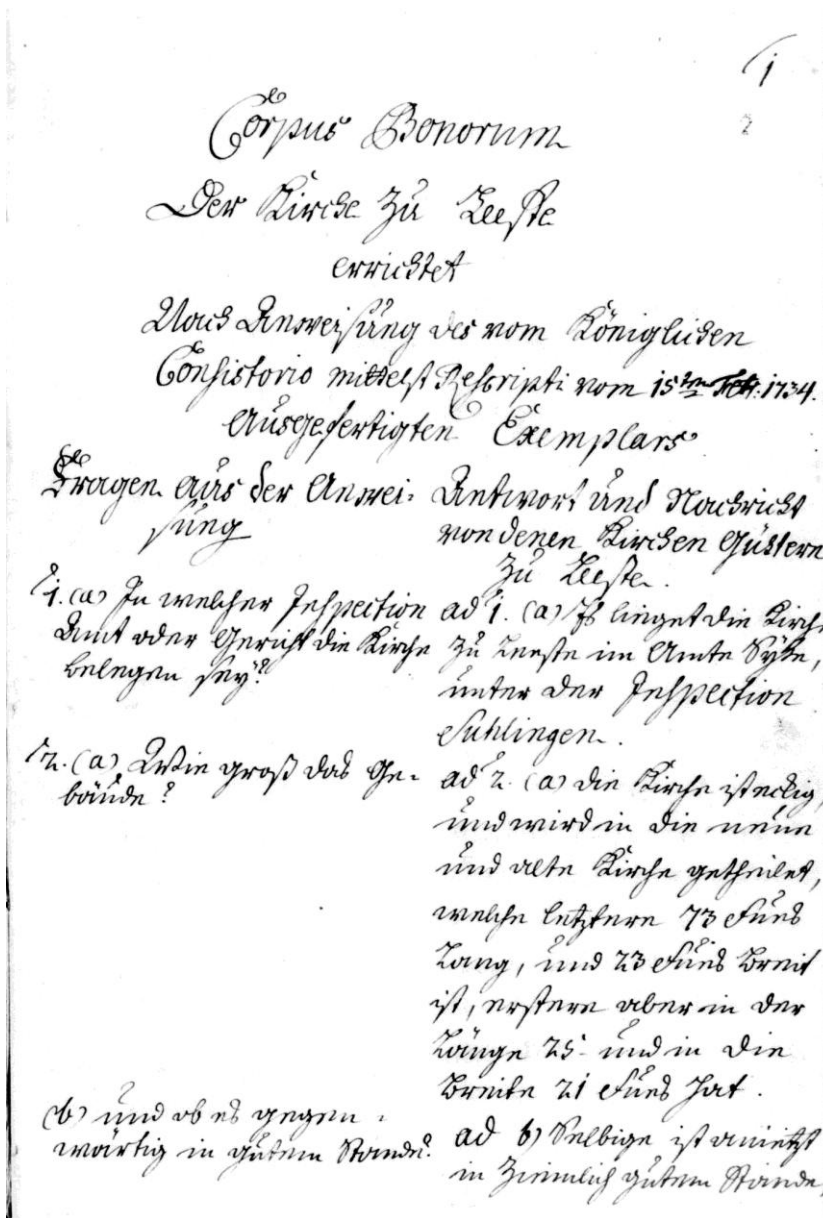 1
2
Corpus Bonorum
Der Kirche Zu Leeste
errichtet
Nach Anweisung des vom Königlichen
Consistorio mittelst Rescripti vom 15ten Febr: 1734.
Ausgefertigten Exemplars
Fragen aus der Anwei-
sung
§1. (a) In welcher Inspection
Amt oder Gericht die Kirche
belegen sey?
§2. (a) Wie groß das Ge-
bäude?
(b) und ob es gegen-
wärtig in gutem Stande?
Antwort und Nachricht
von denen Kirchen Güthern
Zu Leeste.
ad §1. (a) Es lieget die Kirche
zu Leeste im Amte Syke,
unter der Inspection
Suhlingen.
ad §2. (a) die Kirche ist eckig,
und wird in die neue
und alte Kirche getheilet,
welche letztere 73 Fues
Lang, und 23 Fues breit
ist, erstere aber in der
Länge 25 und in die
Breite 21 Fues hat.
ad b) Selbige ist anietzt
in Ziemlich gutem Stande,